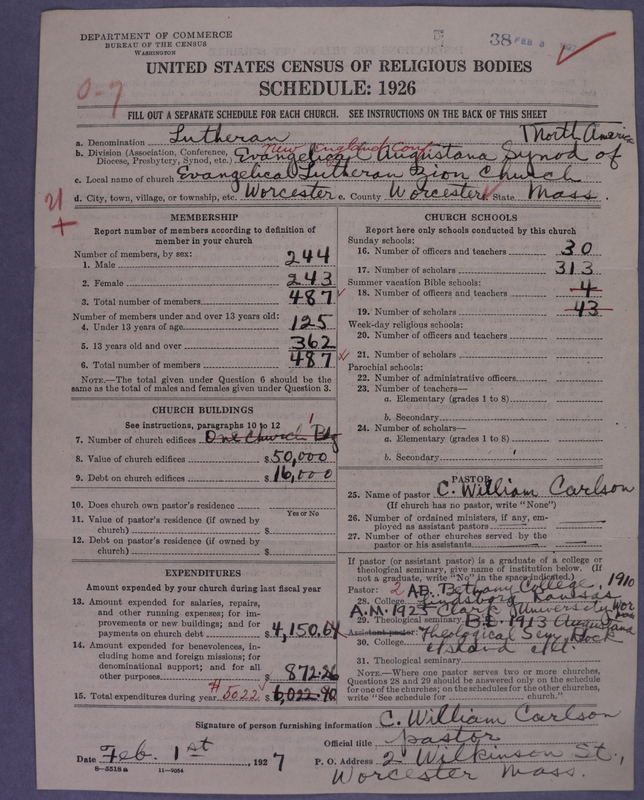 DEPARTMENT OF COMMERCE
BUREAU OF THE CENSUS
WASHINGTON
38 FEB 3 1927
UNITED STATES CENSUS OF RELIGIOUS BODIES
SCHEDULE: 1926
0-7
FILL OUT A SEPARATE SCHEDULE FOR EACH CHURCH. SEE INSTRUCTIONS ON THE BACK OF THIS SHEET
a. Denomination Lutheran North America
New England Conf
b. Division (Association, Conference, Diocese, Presbytery, Synod, etc.) Evangelical Augustana Synod of
c. Local name of church Evangelical Lutheran Zion Church
d. City, town, village, or township, etc. Worcester e. County Worcester State Mass.
MEMBERSHIP
Report number of members according to definition of
member in your church
Number of members, by sex:
1. Male 244
2. Female 243
3. Total number of members 487
Number of members under and over 13 years old:
4. Under 13 years of age 125
5. 13 years old and over 362
6. Total number of members 487
NOTE.—The total given under Question 6 should be
same as the total of males and females given under Question 3.
CHURCH BUILDINGS
See instructions, paragraphs 10 to 12
7. Number of church edifices One Church Bdg 1
8. Value of church edifices $50,000
9. Debt on church edifices $16,000
10. Does church own pastor's residence
Yes or No
11. Value of pastor's residence (if owned by
church) $
12. Debt on pastor's residence (if owned by
church) $
EXPENDITURES
Amount expended by church during last fiscal year
13. Amount expended for salaries, repairs,
and other running expenses; for im-
provements or new building; and for
payments on church debt $4,150.64
14. Amount expended for benevolences, in-
cluding home and foreign missions; for
denominational support; and for all
other purposes 872.26
15. Total expenditures during year #5022 $6,022.90
CHURCH SCHOOLS
Report here only schools conducted by this church
Sunday schools:
16. Number of officers and teachers 30
17. Number of scholars 313
Summer vacation Bible schools:
18. Number of officers and teachers 4
19. Number of scholars 43
Week-day religious schools:
20. Number of officers and teachers
21. Number of scholars
Parochial schools:
22. Number of administrative officers
23. Number of teachers—
a. Elementary (grades 1 to 8)
b. Secondary
24. Number of scholars—
a. Elementary (grades 1 to 8)
b. Secondary
PASTOR
25. Name of pastor C. William Carlson
(If church has no pastor, write "None")
26. Number of ordained ministers, if any, em-
ployed as assistant pastors
27. Number of other churches served by the
pastor or his assistants
If pastor (or assistant pastor) is a graduate of a college or
theological seminary, give name of institution below. (If
not a graduate, write "No" in the space indicated.)
Pastor: 2 AB. Bethany College, 1910
28. College Lindsborg Kansas
A.M. 192 Clark University Wor
29. Theological seminary B.D. 1913 Augustana
Assistant pastor: Theological Semy Rock
30. College Island Ill.
31. Theological seminary
NOTE.—Where one pastor serves two or more churches,
Questions 28 and 29 should be answered only on the schedule
for one of the churches; on the schedules for the other churches,
write "See schedule for church."
Signature of person furnishing information C. William Carlson
Official title pastor
Date Feb. 1st, 1927 P. O. Address 2 Wilkinson St.,
8-5518a 11-9054 Worcester Mass.